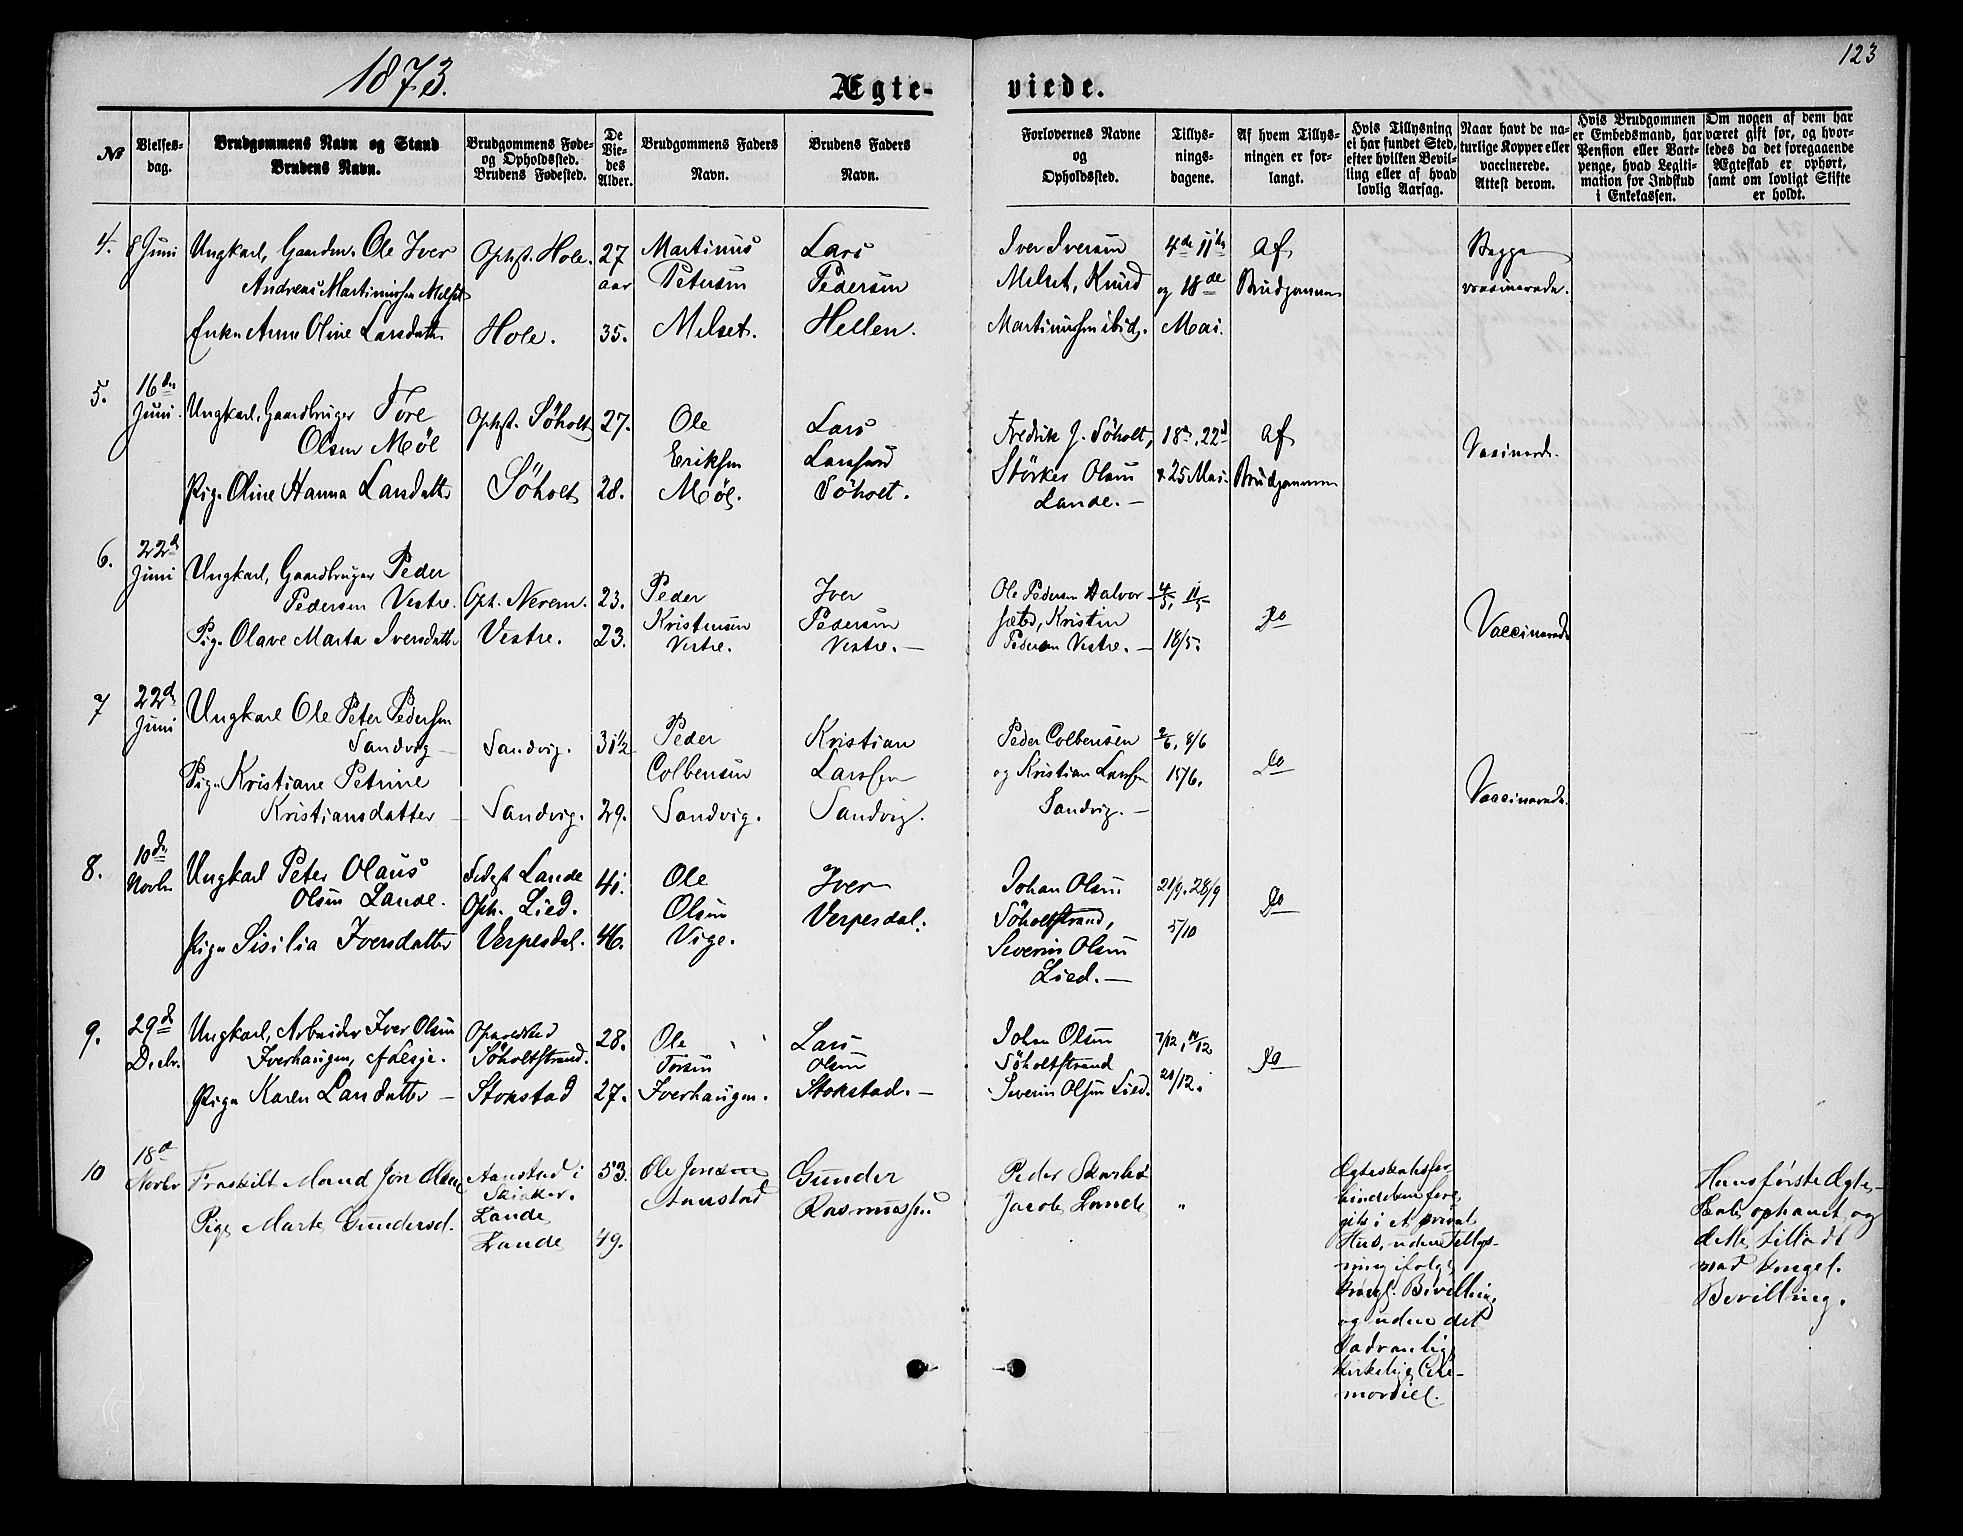 1873.
Ægte-
viede.
123
№
Vielses-
dag.
Brudgommens Navn og Stand
Brudens Navn.
Brudgommens Føde-
og Opholdssted.
Brudens Fødested.
De
Vie-
des
Alder.
Brudgommens Faders
Navn.
Brudens Faders
Navn.
Forlovernes Navne
og
Opholdssted.
Tillys-
nings-
dagene.
Af hvem Tillys-
ningen er for-
langt.
Hvis Tillysning
ei har fundet Sted,
efter hvilken Bevil-
ling eller af hvad
lovlig Aarsag.
Naar havt de na-
turlige Kopper eller
vaccinerede.
Attest derom.
Hvis Brudgommen
er Embedsmand, har
Pension eller Vart-
penge, hvad Legiti-
mation for Indskud
i Enkekassen.
Om nogen af dem har
været gift før, og hvor-
ledes da det foregaaende
Ægteskab er ophørt,
samt om lovligt Skifte
er holdt.
4.
8 Juni
Ungkarl, Gaardm. Ole Iver
Andreas Martinussen Melset
Enke Anne Oline Larsdatter
Ophst. Hole.
Hole.
27
aar
35.
Martinus
Petersen
Melset.
Lars
Pedersen
Hellen.
Iver Iversen
Melset, Knud
Martinussen ibid.
4de 11te
og 18de
Mai.
Af
Brudgommen
Begge
vaccinerede.
5.
16de
Juni.
Ungkarl, Gaardbruger Tore
Olsen Möl
Pige Oline Hanna Larsdatter
Ophst. Söholt
Söholt
27.
28.
Ole
Eriksen
Möl.
Lars
Larssen
Söholt.
Fredrik J. Söholt,
Störker Olsen
Lande. —
18de, 22d
& 25 Mai.
Af
Brudgommen
Vaccinerede.
6.
22d
Juni
Ungkarl, Gaardbruger Peder
Pedersen Vestre.
Pige Olave Marta Iversdatter
Oph. Nerem.
Vestre.
23.
23.
Peder
Kristensen
Vestre.
Iver
Pedersen
Vestre. —
Ole Pedersen Halvor-
sæter, Kristen
Pedersen Vestre. —
4/5, 11/5
18/5.
Do
Vaccinerede
7
22d
Juni
Ungkarl Ole Peter Pedersen
Sandvig —
Pige Kristiane Petrine
Kristiansdatter —
Sandvig.
Sandvig.
31½
29.
Peder
Colbensen
Sandvig.
Kristian
Larssen
Sandvig.
Peder Colbensen
og Kristian Larssen
Sandvig. —
2/6, 8/6
15/6.
Do
Vaccinerede.
8.
10de
Novbr
Ungkarl Peter Olaus
Olsen Lande.
Pige Sisilia Iversdatter
Fødest Lande
Oph. Lied.
Verpesdal.
41.
46.
Ole
Olsen
Vige.
Iver
Verpesdal.
Johan Olsen
Söholtstrand,
Severin Olsen
Lied. —
21/9, 28/9
5/10
Do
9.
29d
Decbr.
Ungkarl, Arbeider Iver Olsen
Iverhaugen, af Lesje.
Pige Karen Larsdatter —
Opholdsted
Söholtstrand.
Stokstad
28.
27.
Ole
Torsen
Iverhaugen.
Lars
Olsen
Stokstad. —
Johan Olsen
Söholtstrand
Severin Olsen Lied.
7/12, 14/12
21/12.
Do
10
18d
Novbr
Fraskilt Mand Jon Olsen
Pige Marte Gundersd.
Aanstad i
Skiaker.
Lande
Lande
53.
49.
Ole Jonsen
Aanstad
Gunder
Rasmussen
Peder
Jacob Lande
"
Ægteskabsfor-
bindelsen fore-
gik i et privat
Hus, uden Tillys-
ning ifølge
Kongl. Bevilling
og uden det
sædvanlig
kirkelige Cere-
moniel.
Hans første Ægte-
skab ophævet og
dette tilladt
ved Kongel.
Bevilling.